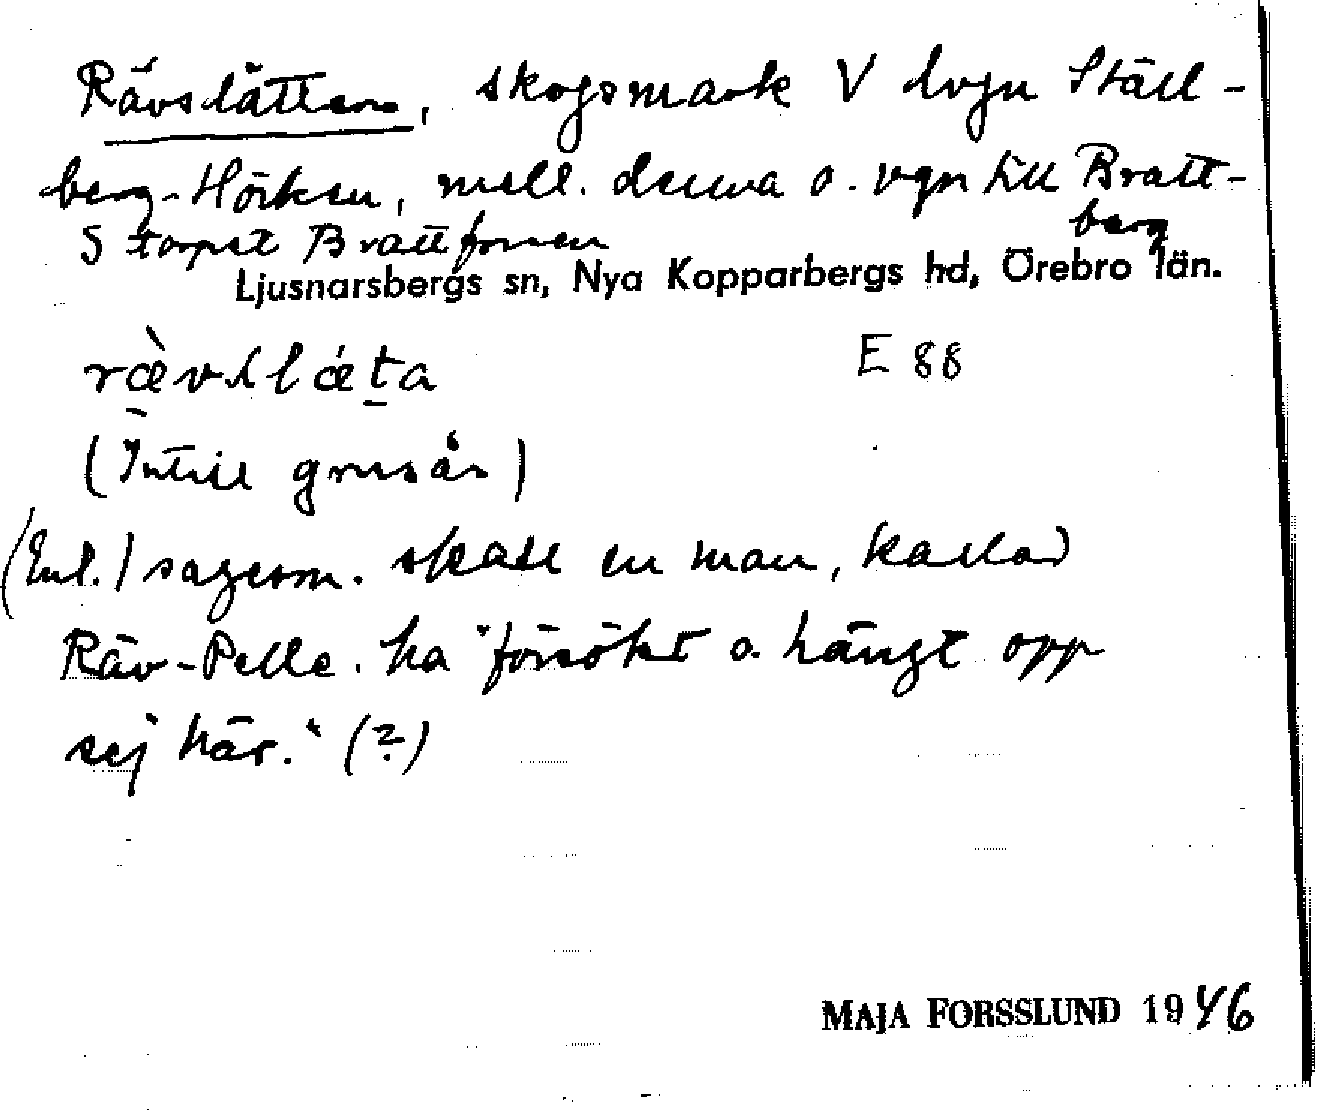 Rävslätten, skogsmark V lvgn Ställ-
berg-Hörken, mell. denna o. vgn till Bratt-
berg
S torpet Brattforsen
Ljusnarsbergs sn, Nya Kopparbergs hd, Örebro län.
E 88
(Intill grusås)
(Enl.) sagesm. skall en man, kallad
Räv-Pelle. ha "försökt o. hängt opp
sej här." (?)
MAJA FORSSLUND 1946